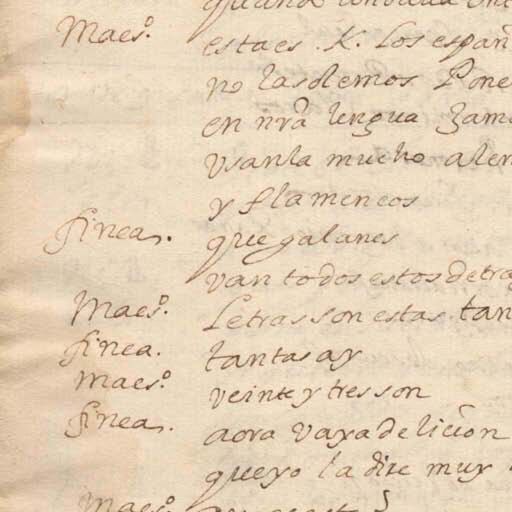 Maes.º
esta es .K. los españ
no las demos Pone
en nrã lengua Jam
Vsanla mucho alem
y flamencos
finea. que galanes
Van todos estos detra
Maes.º Letras son estas tan
finea. tantas ay
Maes.º veinte y tres son
finea. aora vaya de licion
que yo la dire muy
Maes.º